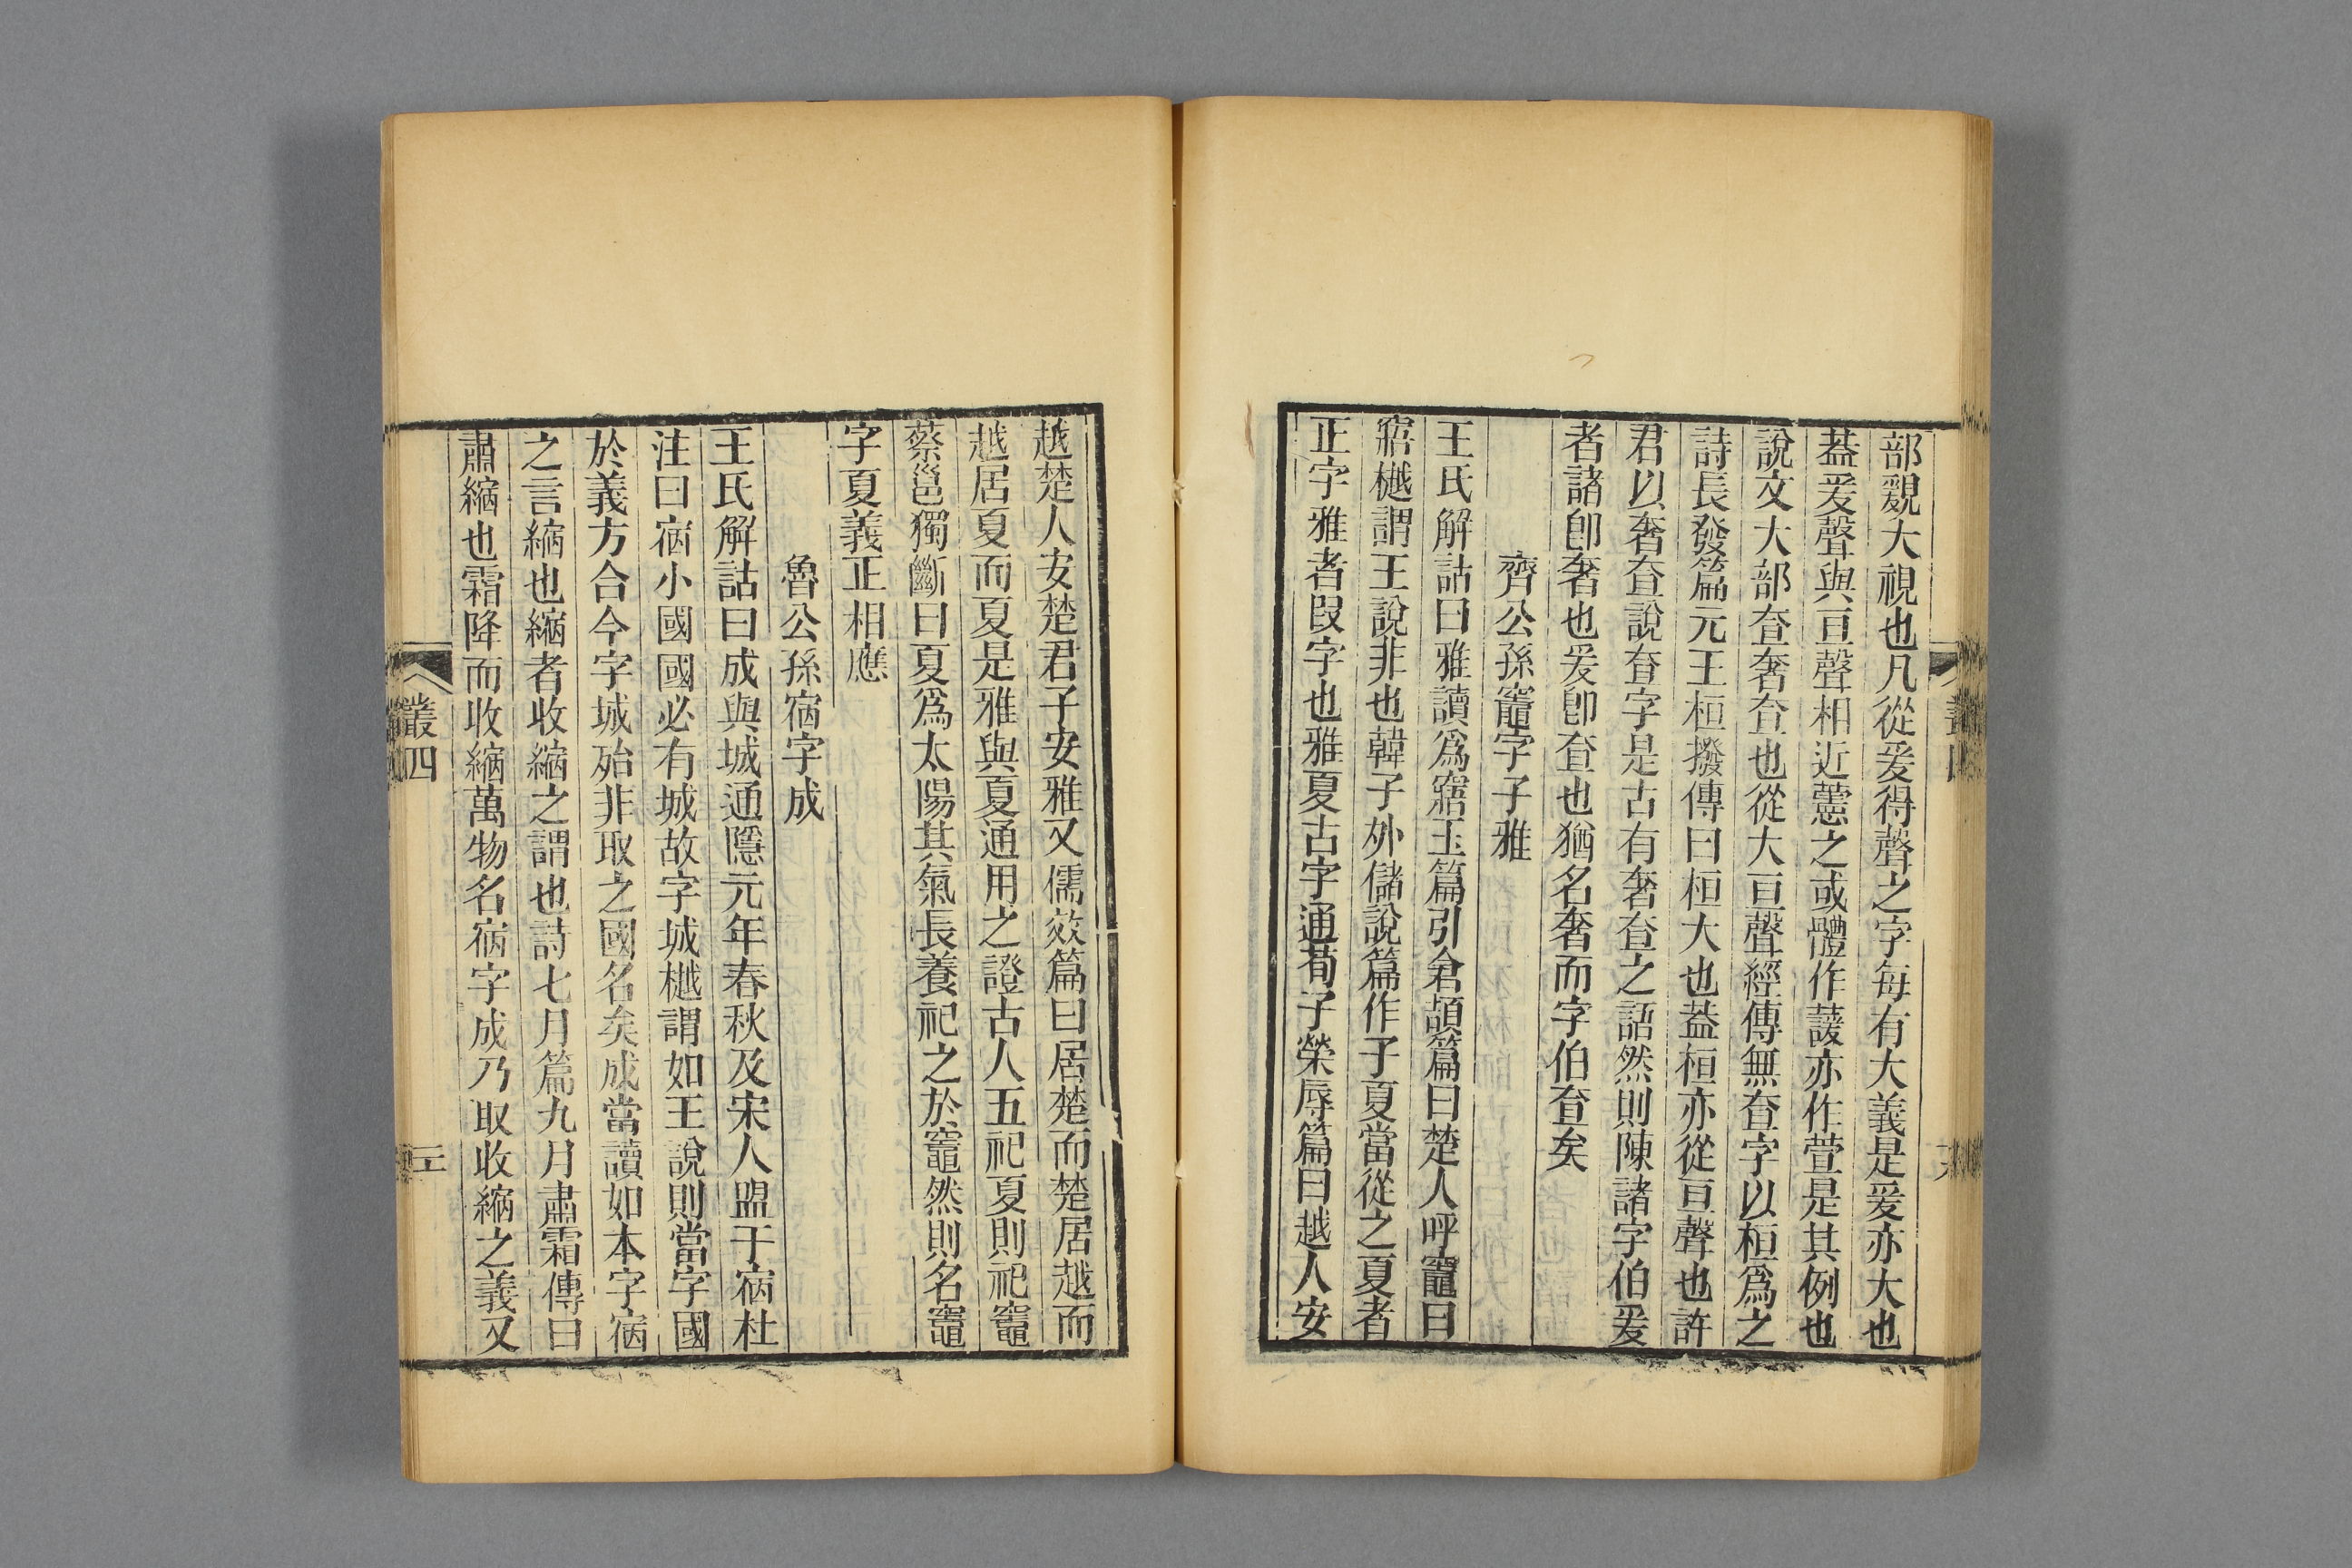 部覶大視也凡從爰得聲之字每有大義是爰亦大也
葢爰聲與亘聲相近藼之或體作蕿亦作萱是其例也
說文大部奆奢奆也從大亘聲經傳無奆字以桓爲之
詩長發篇元王桓撥傳曰桓大也葢桓亦從亘聲也許
君以奢奆說奆字是古有奢奆之語然則陳諸字伯爰
者諸卽奢也爰卽奆也猶名奢而字伯奆矣
齊公孫竈字子雅
王氏解詁曰雅讀爲㝛玉篇引倉頡篇曰楚人呼竈曰
㝛樾謂王說非也韓子外儲說篇作子夏當從之夏者
正字雅者叚字也雅夏古字通荀子榮辱篇曰越人安
越楚人安楚君子安雅又儒效篇曰居楚而楚居越而
越居夏而夏是雅與夏通用之證古人五祀夏則祀竈
蔡邕獨斷曰夏爲太陽其氣長養祀之於竈然則名竈
字夏義正相應
魯公孫宿字成
王氏解詁曰成與城通隱元年春秋及宋人盟于宿杜
注曰宿小國國必有城故字城樾謂如王說則當字國
於義方合今字城殆非取之國名矣成當讀如本字宿
之言縮也縮者收縮之謂也詩七月篇九月肅霜傳曰
肅縮也霜降而收縮萬物名宿字成乃取收縮之義又
叢四